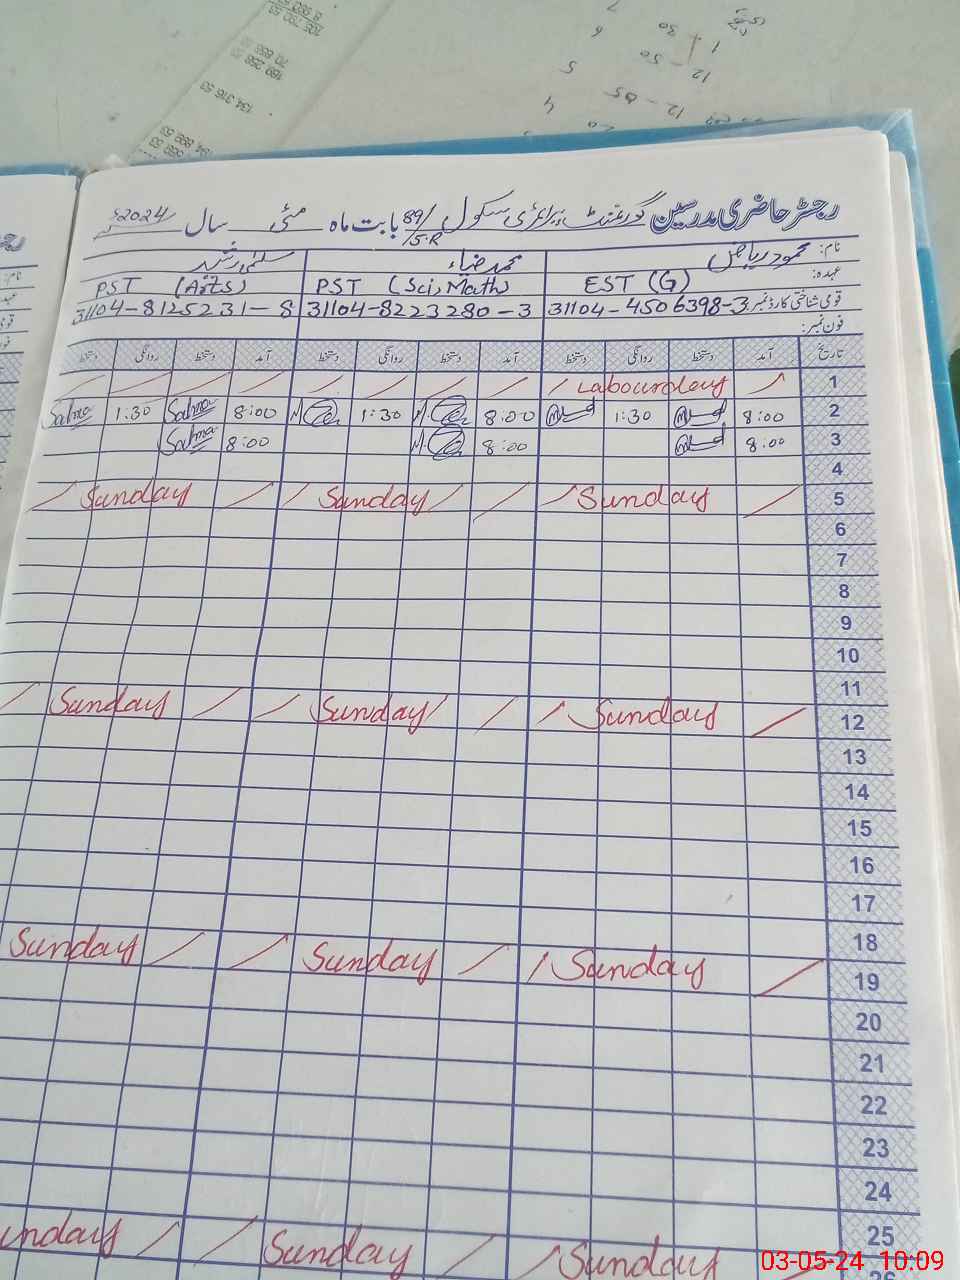 رجسٹر حاضری مدرسین گورنمنٹ پرائمری سکول 89/5.R بابت ماہ مئی سال 2024ء
نام: محمود ریاض محمد ضیاء سلمیٰ رشید
عہدہ: EST (G) PST (Sci, Math) PST (Arts)
قومی شناختی کارڈ نمبر: 31104-4506398-3 31104-8223280-3 31104-8125231-8
فون نمبر:
تاریخ آمد دستخط روانگی دستخط آمد دستخط روانگی دستخط آمد دستخط روانگی دستخط
1 Labour day
2 8:00 1:30 8:00 1:30 8:00 Salma 1:30 Salma
3 8:00 8:00 8:00 Salma
4
5 Sunday Sunday Sunday
6
7
8
9
10
11
12 Sunday Sunday Sunday
13
14
15
16
17
18
19 Sunday Sunday Sunday
20
21
22
23
24
25
26 Sunday Sunday unday
03-05-24 10:09